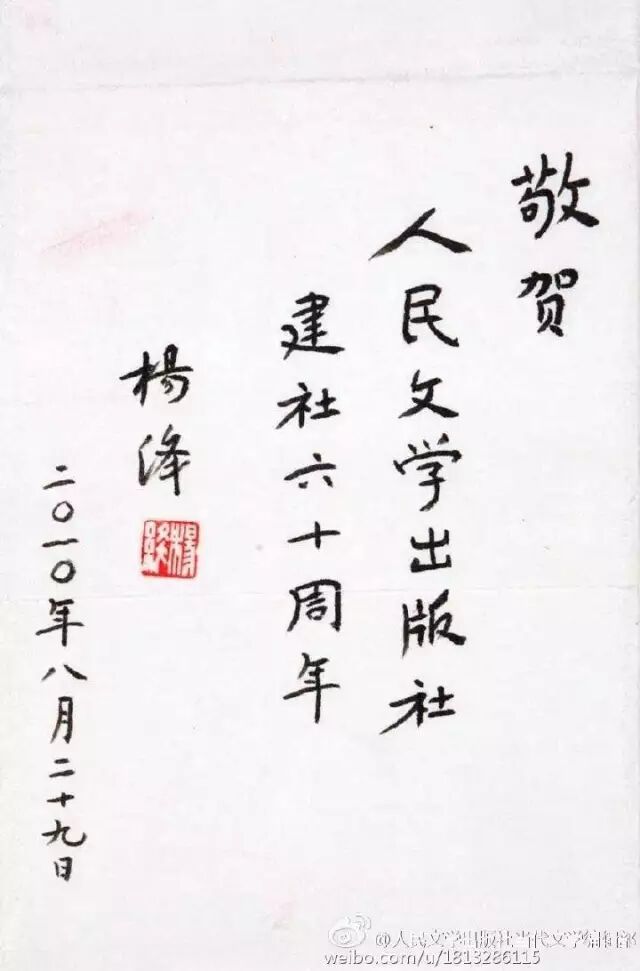 敬贺
人民文学出版社
建社六十周年
楊绛
二〇一〇年八月二十九日
@人民文学出版社当代文学编辑部
weibo.com/u/1813286115